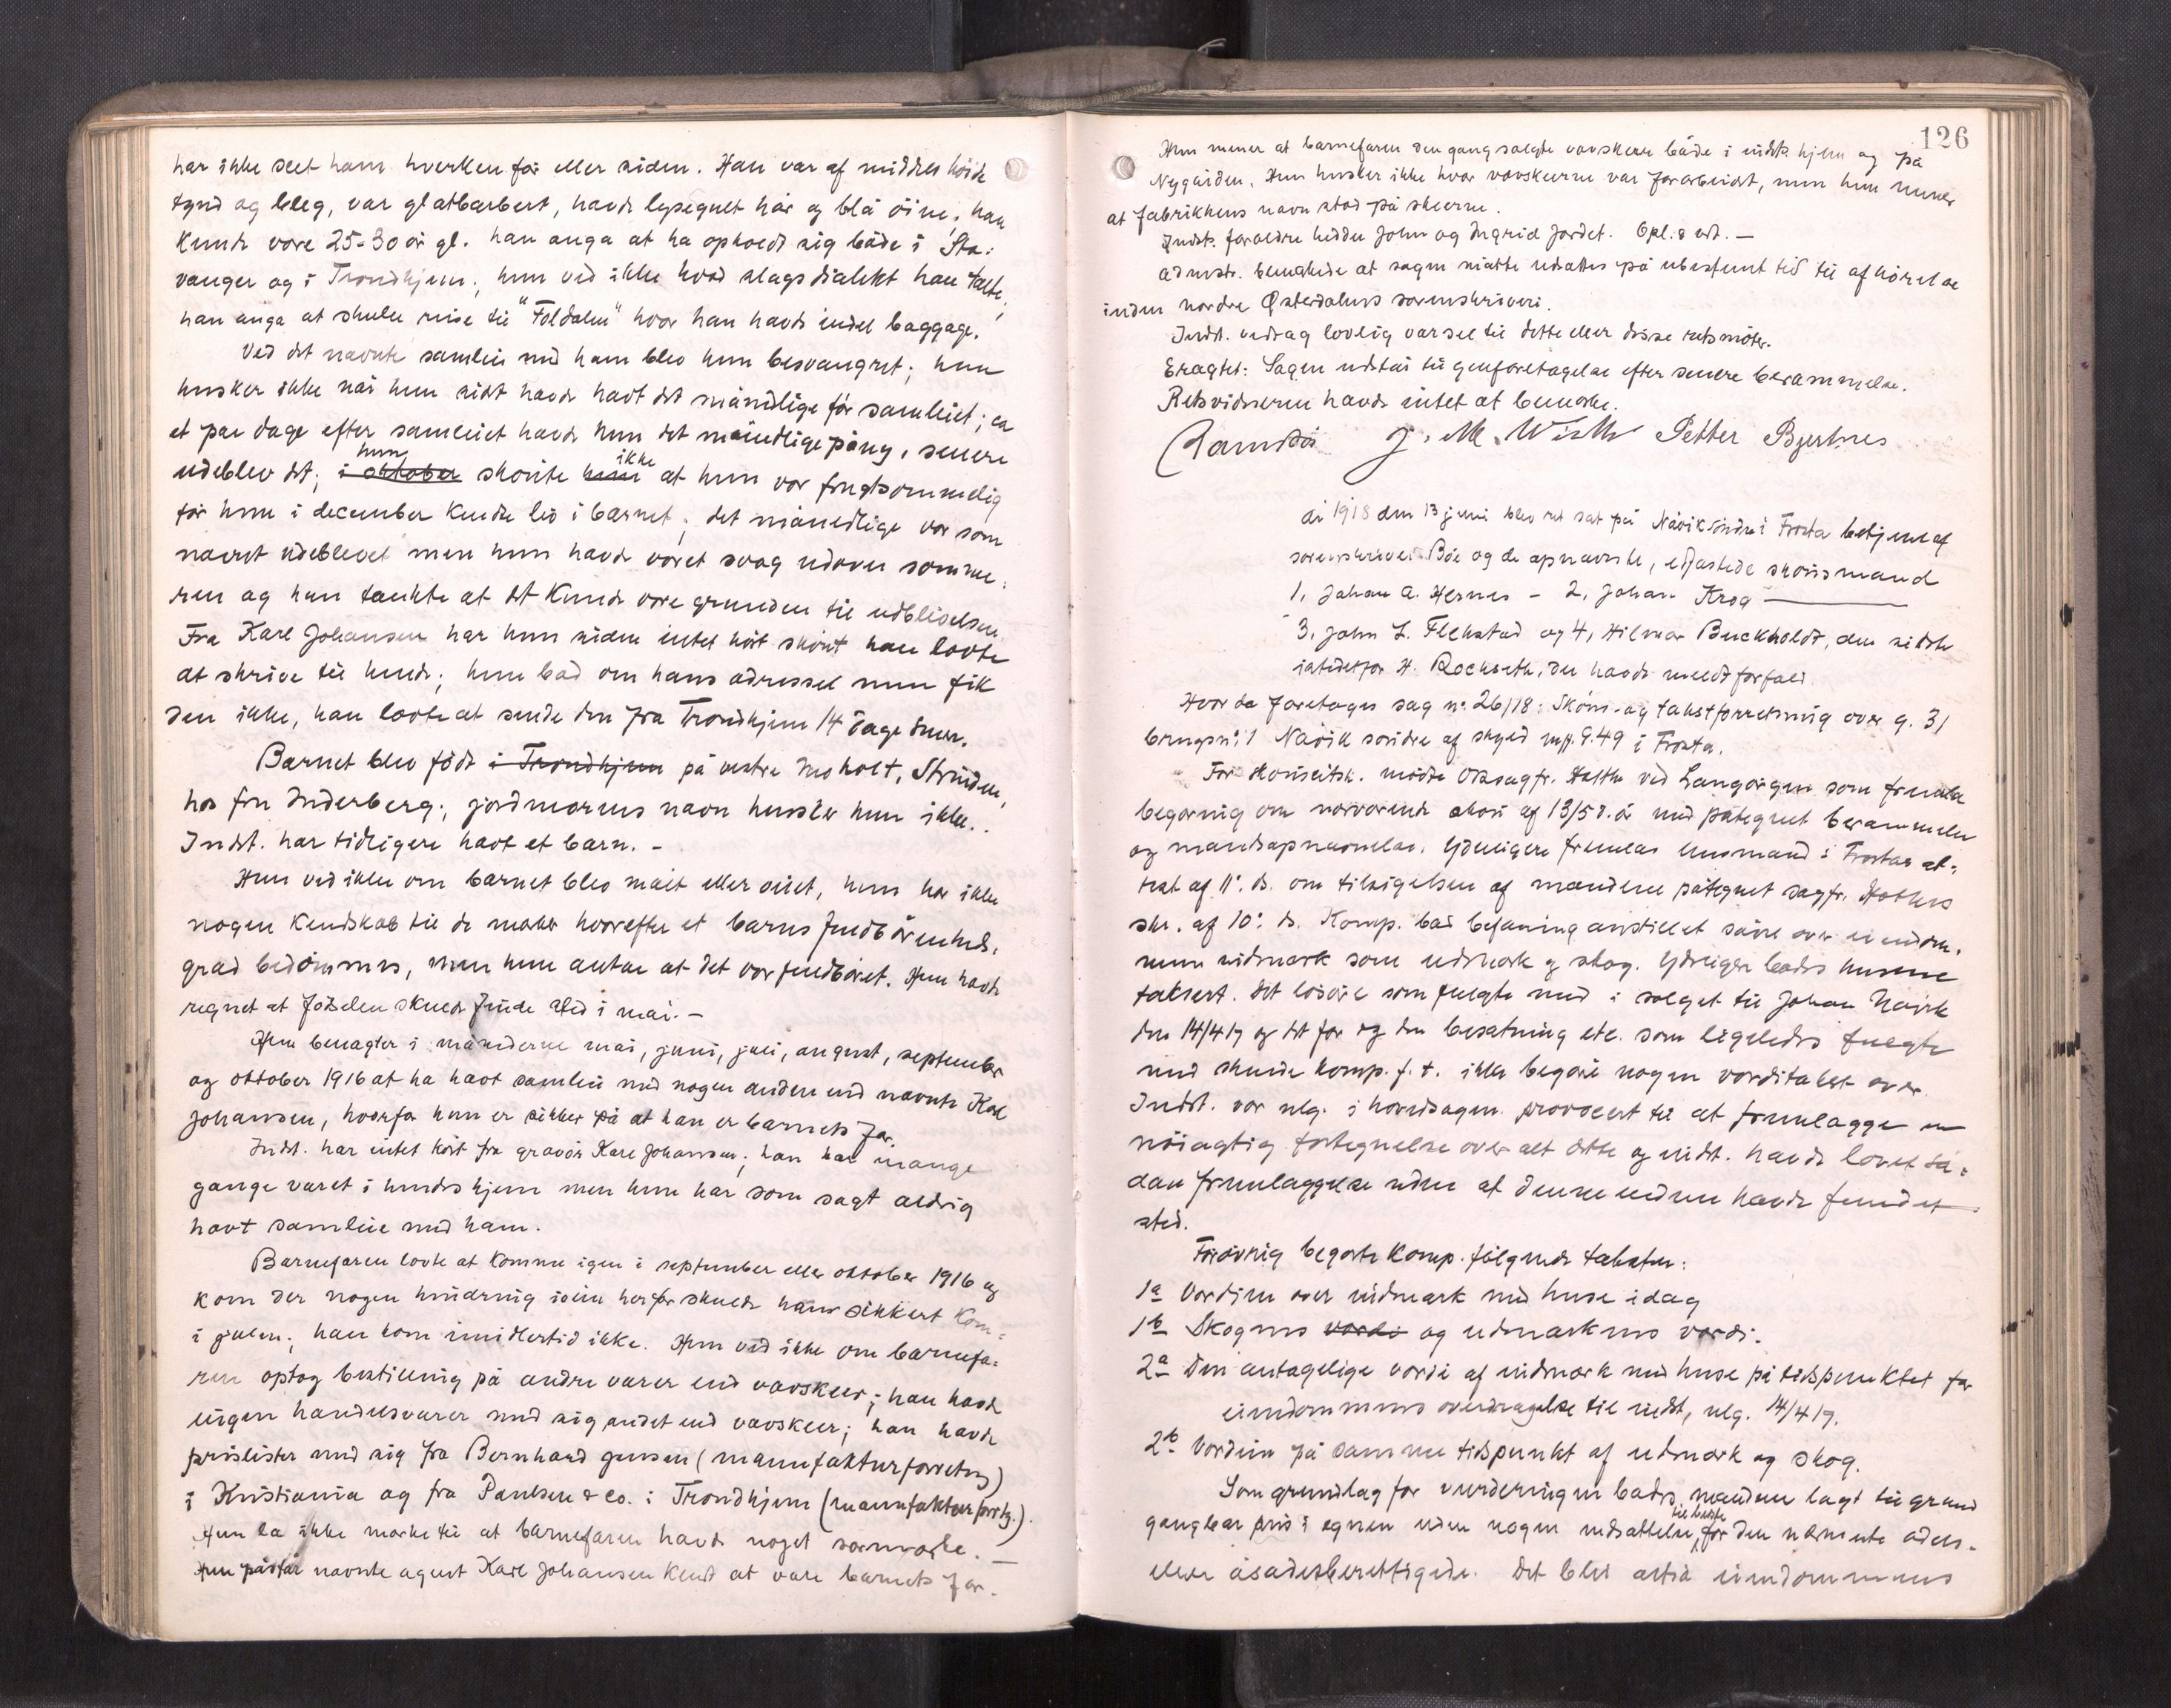 har ikke seet ham hverken før eller siden. Han var af middels höide
tynd og bleg, var glatbarbert, havde lysegult hår og blå öine, han
kunde være 25-30 år gl. han anga at ha opholdt sig både i Sta-
vanger og i Trondhjem; hun ved ikke hvad slags dialekt han talte;
han anga at skulle reise til "Foldalen" hvor han havde endel baggage.
Ved det nævnte samleie med ham blev hun besvangret; hun
husker ikke når hun sidst havde havt det månedlige för samleiet; ca
et par dage efter samleiet havde hun det månedlige påny, senere
udeblev det; i oktober hun skönte hun ikke at hun var frugtsommelig
för hun i december kjendte liv i barnet; det månedlige var som
nævnt udeblevet men hun havde været svag udover somme-
ren og hun tænkte at det kunde være grunden til udeblivelsen.
Fra Karl Johansen har hun siden intet hört skönt han lovte
at skrive til hende; hun bad om hans adresse men fik
den ikke, han lovte at sende den fra Trondhjem 14 dage senere.
Barnet blev födt i Trondhjem på vestre Moholt, Strinden,
hos fru Inderberg; jordmorens navn husker hun ikke.
Indst. har tidligere havt et barn. -
Hun ved ikke om barnet blev målt eller veiet, hun har ikke
nogen kendskab til de mærker hvorefter et barns fuldbårenheds-
grad bedömmes, men hun antar at det var fuldbåret. Hun havde
regnet at födselen skulde finde sted i mai. -
Hun benægter i månederne mai, juni, juli, august, september
og oktober 1916 at ha havt samleie med nogen anden end nævnte Karl
Johansen, hvorfor hun er sikker på at han er barnets far.
Indst. har intet hört fra gravör Karl Johansen; han har mange
gange været i hendes hjem men hun har som sagt aldrig
havt samleie med ham.
Barnefaren lovte at komme igen i september eller oktober 1916 og
kom der nogen hindring iveien herfor skulde han sikkert kom-
i julen; han kom imidlertid ikke. Hun ved ikke om barnefa-
ren optog bestilling på andre varer end vævskeer; han havde
ingen handelsvarer med sig andet end vævskeer; han havde
prislister med sig fra Bernhard Jensen (manufakturforretng)
i Kristiania og fra Paulsen & Co. i Trondhjem (manufakturforretng.).
Hun la ikke mærke til at barnefaren havde noget særmærke. —
Hun påstår nævnte agent Karl Johansen kendt at være barnets far.
126
Hun mener at barnefaren den gang solgte vævskeer både i indst. hjem og på
Nygården. Hun husker ikke hvor vævskeerne var forarbeidet, men hun mener
at fabrikkens navn stod på skeerne.
Indst. forældre hedder John og Ingrid Jordet. Opl. & ved. —
Admstr. bemerkede at sagen måtte udsættes på ubestemt tid til afhörelse
inden nordre Østerdalens sorenskriveri.
Indst. vedtag lovlig varsel til dette eller disse retsmöter.
Eragtet: Sagen udstår til genforetagelse efter senere berammelse.
Retsvidnerne havde intet at bemerke.
J. M. Wisth Petter Bjertnes
År 1918 den 13 juni blev ret sat på Nåvik söndre i Frosta betjent af
sorenskriver Böe og de opnævnte, edfæstede skönsmænd
1, Johan A. Hernes - 2, Johan Krog ———
3, John L. Flekstad og 4, Hilmar Buckholdt, den sidste
istedetfor H. Rockseth, der havde meldt forfald.
Hvorda foretoges sag nr 26/18: Sköns- og takstforretning over g. 31
brugsnr 1 Nåvik söndre af skyld mk. 9.49 i Frosta.
For skönseitsk. mödte overretssagfr. Hatth ved Langörgen som fremla
begæring om nærværende skön af 13/5 d.år med påtegnet berammelse
og mandsopnævnelse. Ydeligere fremlas lensmand i Frostas at-
test af 11' ds. om tilsigelsen af mændene påtegnet sagfr. Hatths
skr. af 10' ds. Komp. bad befaring anstillet såvel over eiendom-
mens indmark som udmark og skog. Ydeligere bades husene
taksert. Det lösöre som fulgte med i salget til Johan Nåvik
den 14/4 19 og det for og den besætning etc. som ligeledes fulgte
med skulde komp. f. t. ikke begære nogen værditakst over.
Indst. var nlg. i hovedsagen provocert til at fremlægge en
nöiagtig fortegnelse over alt dette og indst. havde lovet så-
dan fremlæggelse uden at denne endnu havde fundet
sted.
Forövrig begærte komp. fölgende takster:
1a Værdien over indmark med huse idag
1b Skogens værdi og udmarkens værdi.
2a Den antagelige værdi af indmark med huse på tidspunktet for
eiendommens overdragelse til indst, nlg. 14/4 19.
2b Værdien på samme tidspunkt af udmark og skog.
Som grundlag for vurderingen bades mændene lagt til grund
gangbar pris i egnen uden nogen nedsættelse til bedste for den nærmeste odels-
eller åsædesberettigede. Det blev altså eiendommens